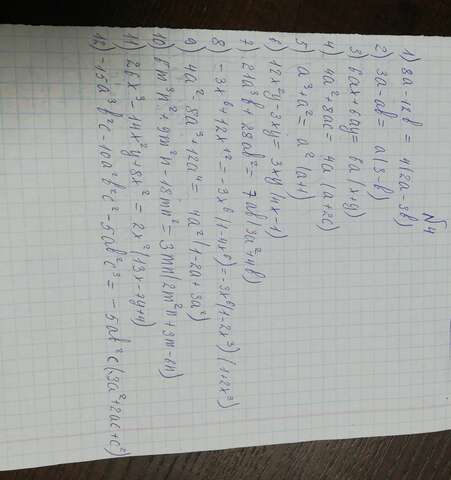 №4
1) 8a - 12b = 4(2a - 3b)
2) 3a - ab = a(3 - b)
3) 6ax + 6ay = 6a(x + y)
4) 4a² + 8ac = 4a(a + 2c)
5) a³ + a² = a²(a + 1)
6) 12x²y - 3xy = 3xy(4x - 1)
7) 21a³b + 28ab² = 7ab(3a² + 4b)
8) -3x⁶ + 12x¹² = -3x⁶(1 - 4x⁶) = -3x⁶(1 - 2x³)(1 + 2x³)
9) 4a² - 8a³ + 12a⁴ = 4a²(1 - 2a + 3a²)
10) 6m³n² + 9m²n - 18mn² = 3mn(2m²n + 3m - 6n)
11) 26x³ - 14x²y + 8x² = 2x²(13x - 7y + 4)
12) -15a³b²c - 10a²b²c² - 5ab²c³ = -5ab²c(3a² + 2ac + c²)